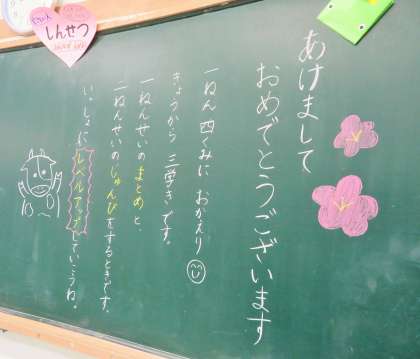 あけまして
おめでとうございます
一ねん四くみに おかえり
きょうから 三学きです。
一ねんせいの まとめと、
二ねんせいの じゅんびをするときです。
いっしょに レベルアップしていこうね。
しんせつ